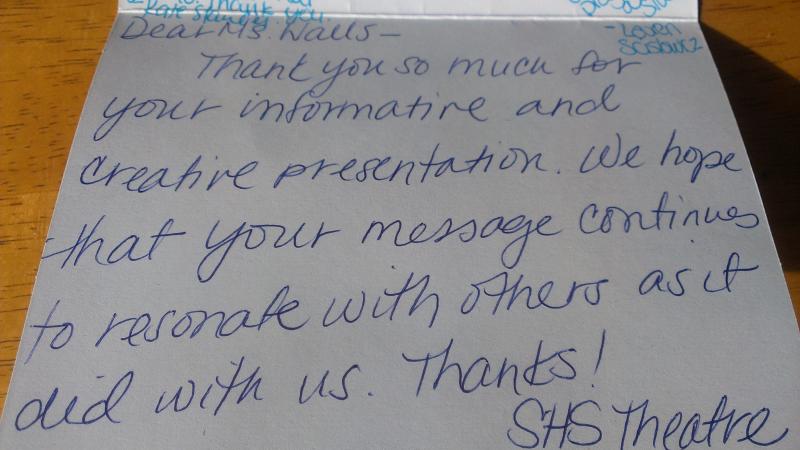 Thank you
Dear Ms. Walls-
Thank you so much for
your informative and
creative presentation. We hope
that your message continues
to resonate with others as it
did with us. Thanks!
SHS Theatre